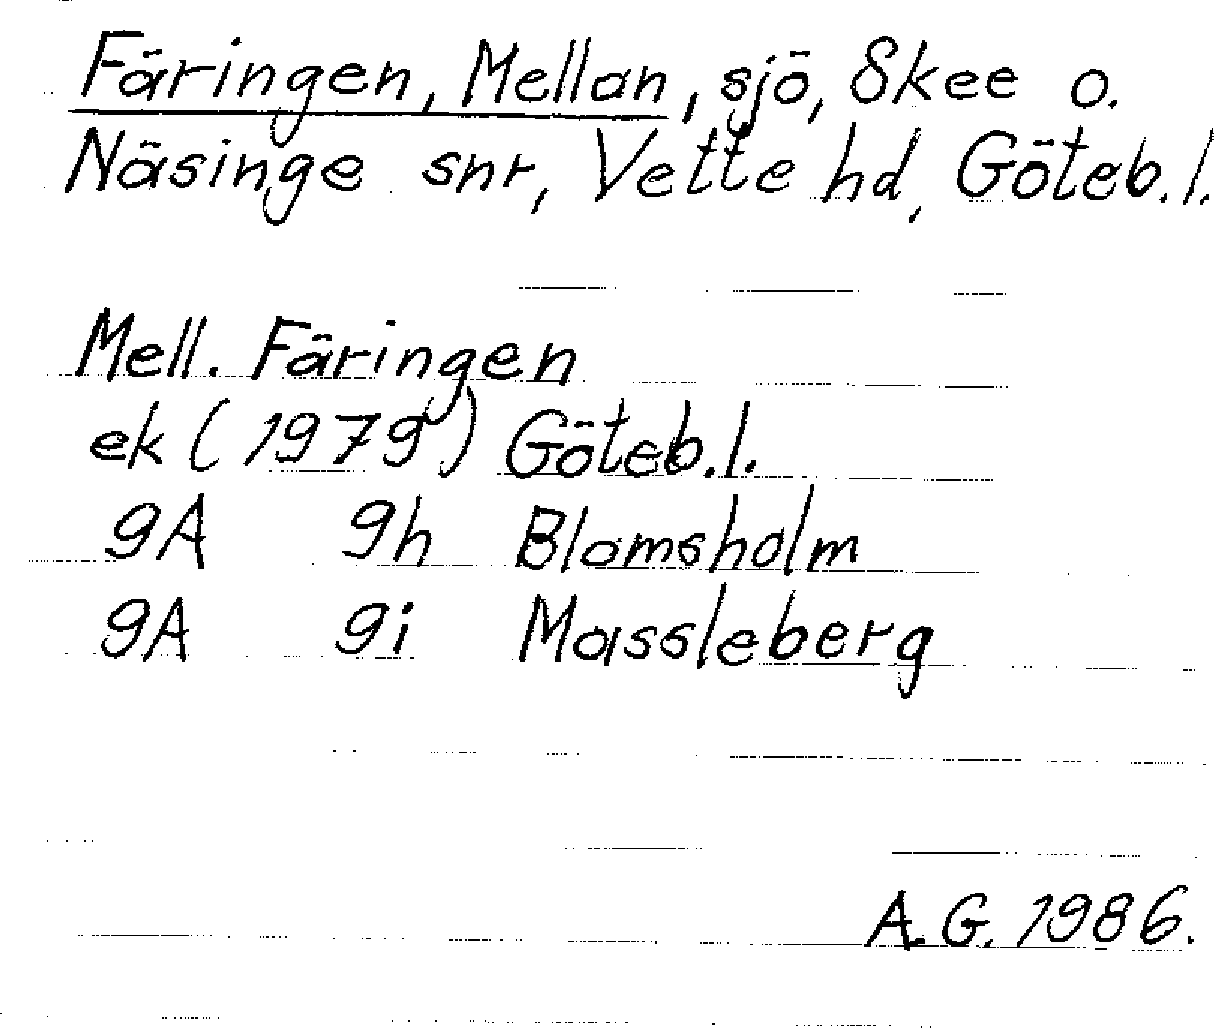 Färingen, Mellan, sjö, Skee o.
Näsinge snr, Vette hd, Göteb.l.
Mell. Färingen
ek (1979) Göteb.l.
9A 9h Blomsholm
9A 9i Massleberg
A.G. 1986.